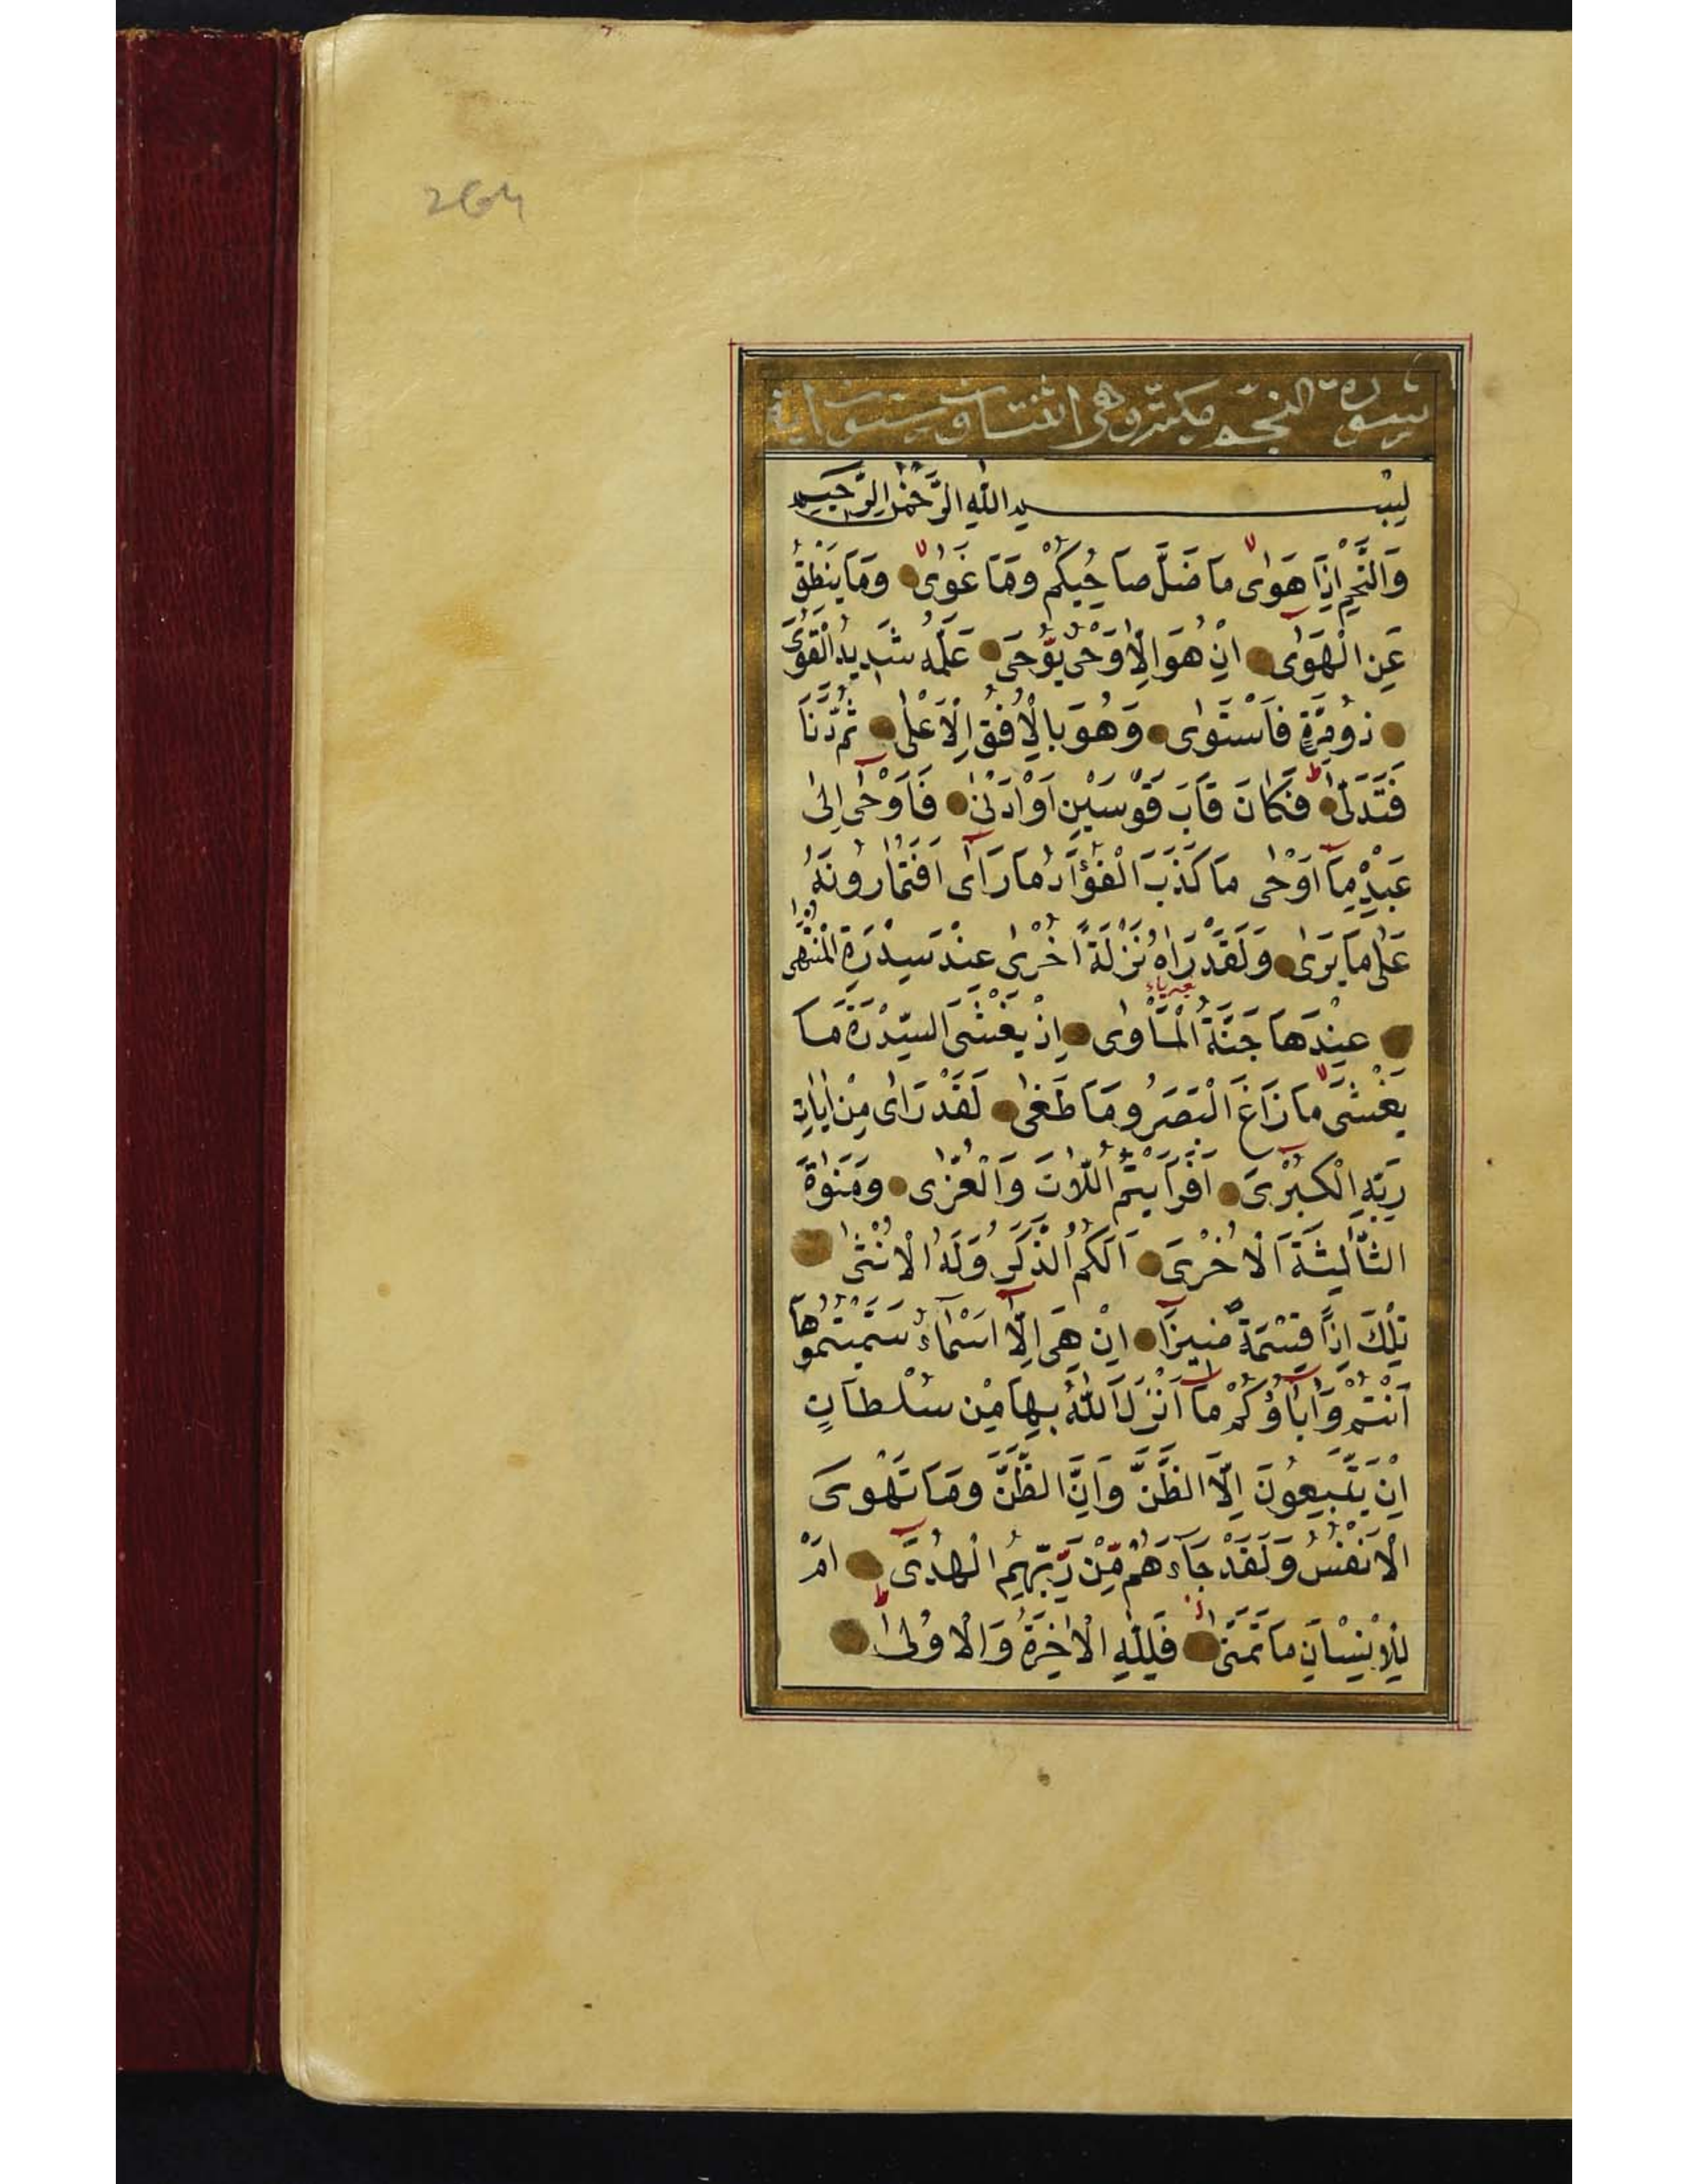 264
سورة النجم مكية وهى اثنتان وستون اية
بسم الله الرَّحْمٰنِ الرَّحِيمِ
وَالنَّجْمِ اِذَا هَوٰى مَا ضَلَّ صَاحِبُكُمْ وَمَا غَوٰى وَمَا يَنْطِقُ
عَنِ الْهَوٰى اِنْ هُوَ اِلَّا وَحْىٌ يُوْحٰى عَلَّمَهُ شَدِيدُ الْقُوٰى
ذُو مِرَّةٍ فَاسْتَوٰى وَهُوَ بِالْاُفُقِ الْاَعْلٰى ثُمَّ دَنَا
فَتَدَلّٰى فَكَانَ قَابَ قَوْسَيْنِ اَوْ اَدْنٰى فَاَوْحٰى اِلٰى
عَبْدِهٖ مَا اَوْحٰى مَا كَذَبَ الْفُؤَادُ مَا رَاٰى اَفَتُمَارُونَهُ
عَلٰى مَا يَرٰى وَلَقَدْ رَاٰهُ نَزْلَةً اُخْرٰى عِنْدَ سِدْرَةِ الْمُنْتَهٰى
عِنْدَهَا جَنَّةُ الْمَاْوٰى اِذْ يَغْشَى السِّدْرَةَ مَا
يَغْشٰى مَا زَاغَ الْبَصَرُ وَمَا طَغٰى لَقَدْ رَاٰى مِنْ اٰيَاتِ
رَبِّهِ الْكُبْرٰى اَفَرَاَيْتُمُ اللَّاتَ وَالْعُزّٰى وَمَنٰوةَ
الثَّالِثَةَ الْاُخْرٰى اَلَكُمُ الذَّكَرُ وَلَهُ الْاُنْثٰى
تِلْكَ اِذًا قِسْمَةٌ ضِيزٰى اِنْ هِىَ اِلَّا اَسْمَاءٌ سَمَّيْتُمُوهَا
اَنْتُمْ وَاٰبَاؤُكُمْ مَا اَنْزَلَ اللّٰهُ بِهَا مِنْ سُلْطَانٍ
اِنْ يَتَّبِعُونَ اِلَّا الظَّنَّ وَاِنَّ الظَّنَّ وَمَا تَهْوَى
الْاَنْفُسُ وَلَقَدْ جَاءَهُمْ مِنْ رَبِّهِمُ الْهُدٰى اَمْ
لِلْاِنْسَانِ مَا تَمَنّٰى فَلِلّٰهِ الْاٰخِرَةُ وَالْاُولٰى